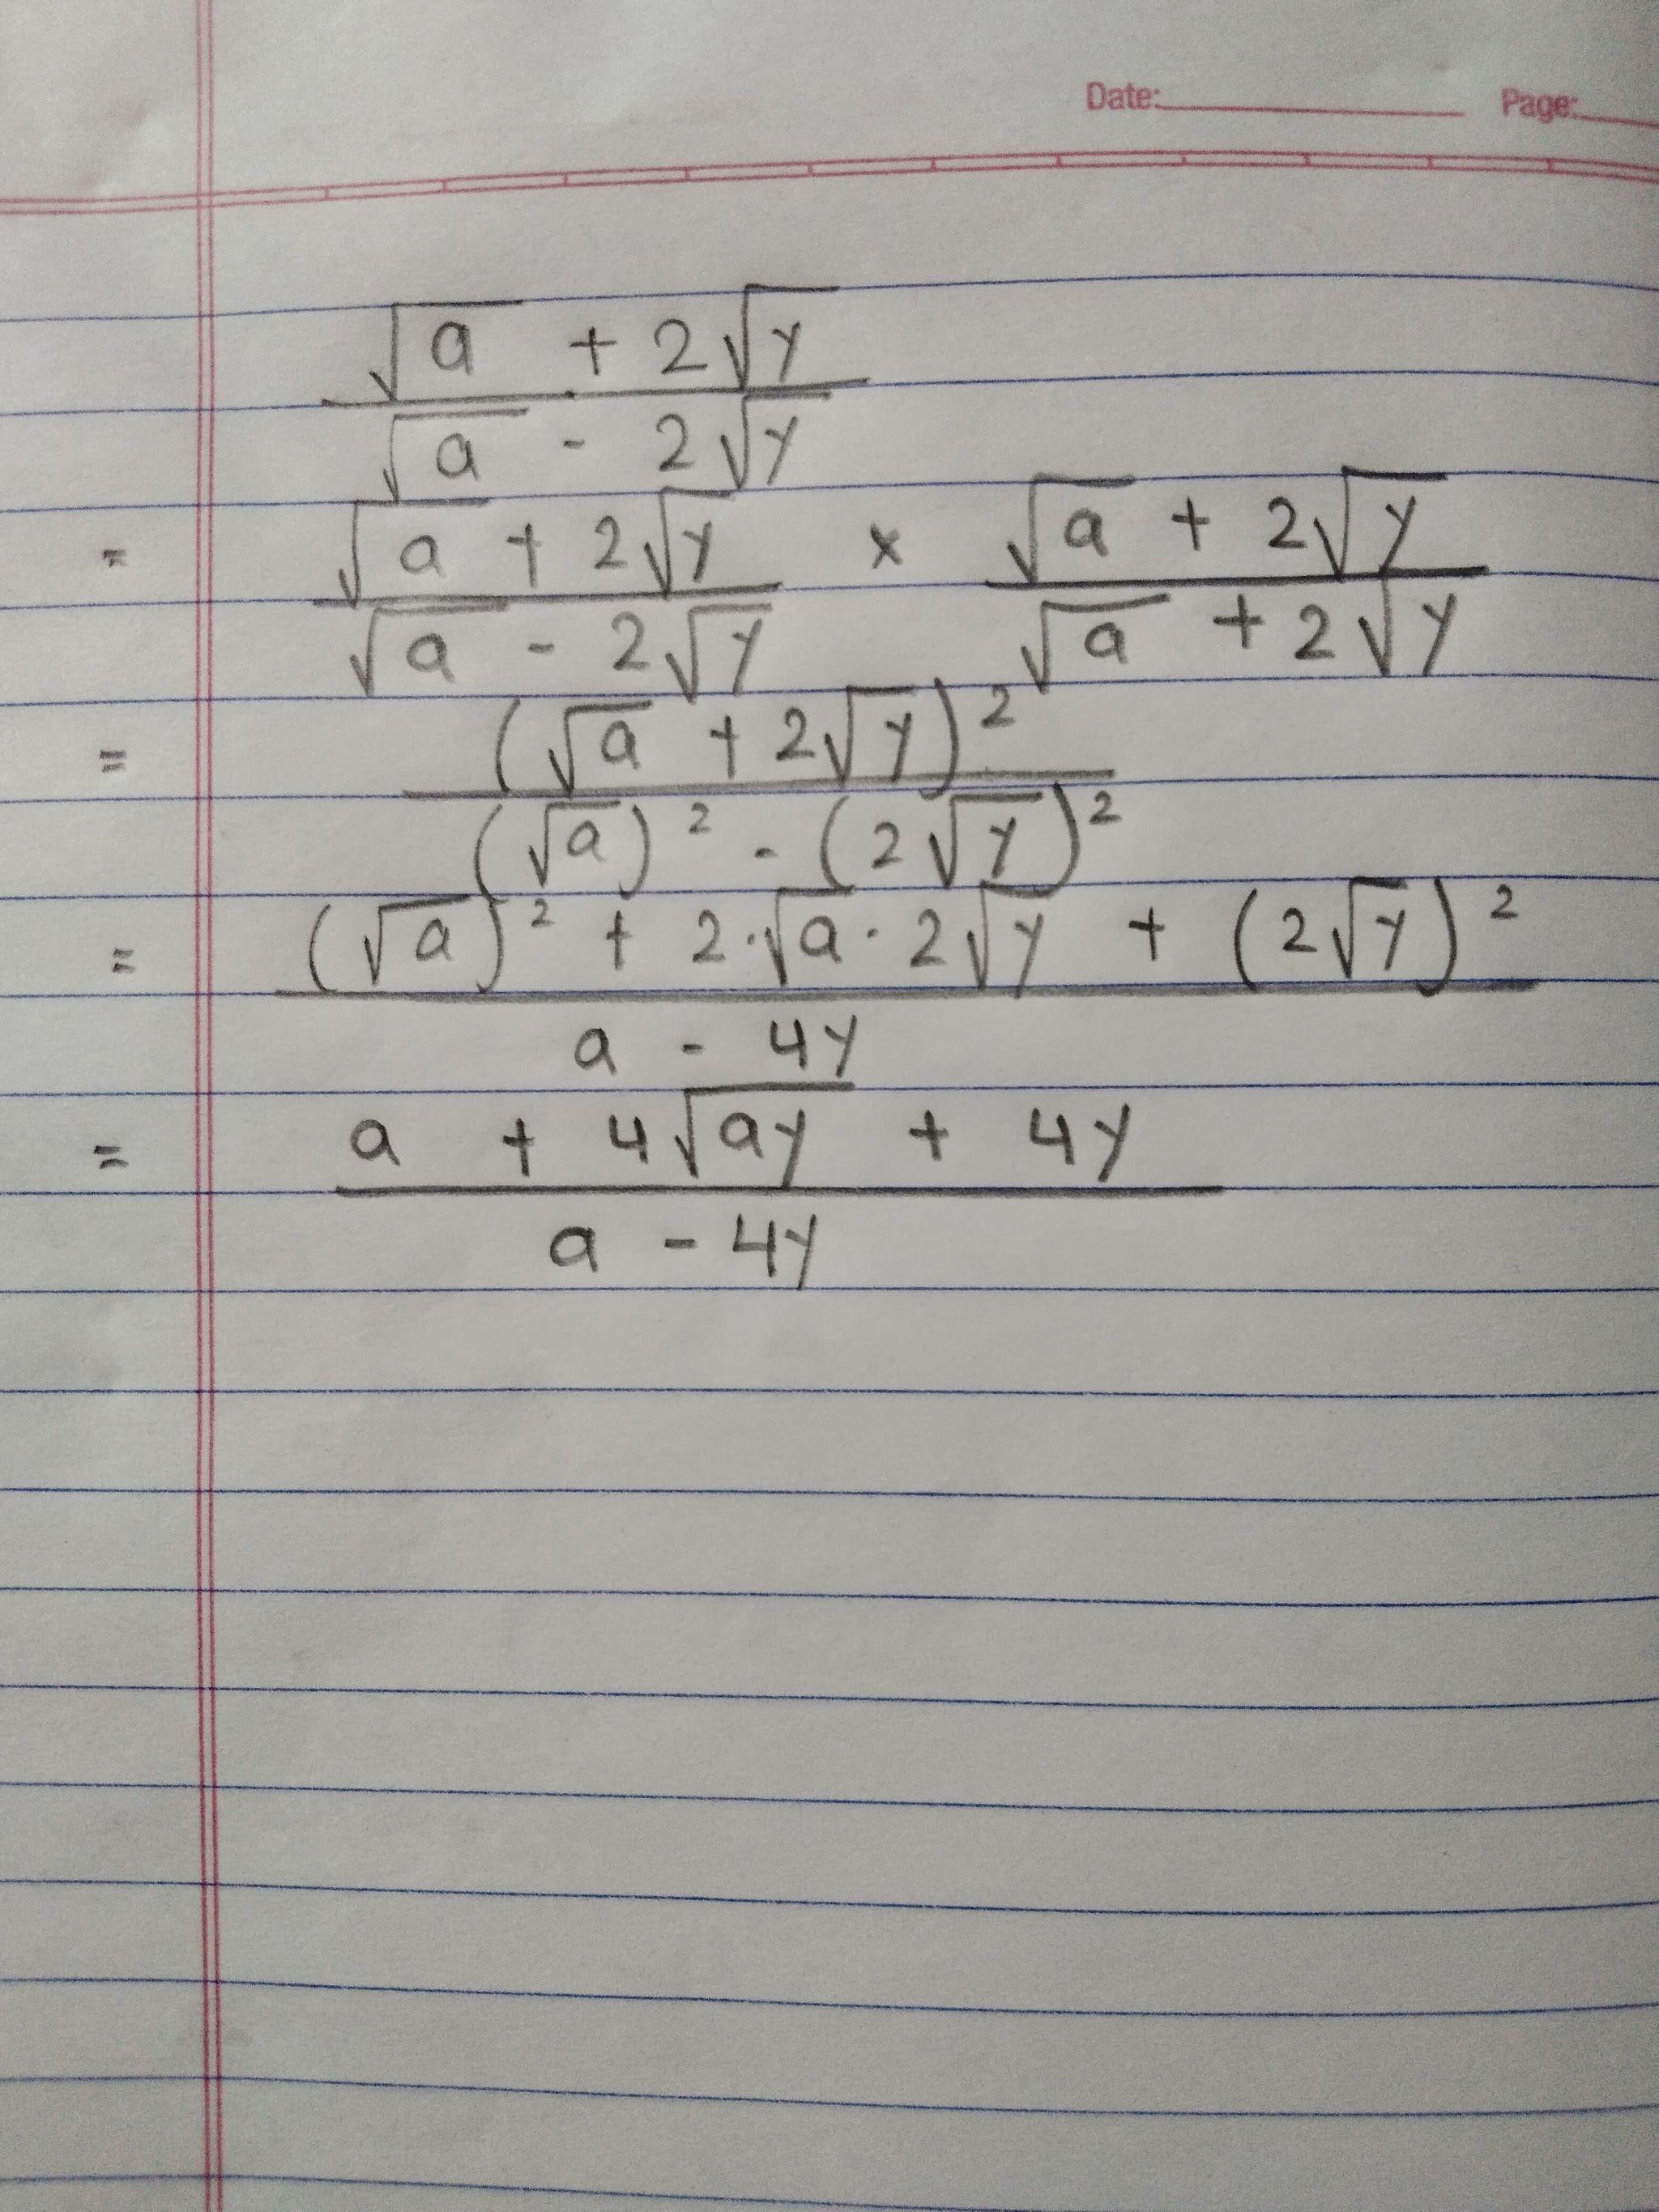 Date: Page:
√a + 2√y
√a - 2√y
= √a + 2√y × √a + 2√y
√a - 2√y √a + 2√y
= (√a + 2√y)²
(√a)² - (2√y)²
= (√a)² + 2·√a·2√y + (2√y)²
a - 4y
= a + 4√ay + 4y
a - 4y